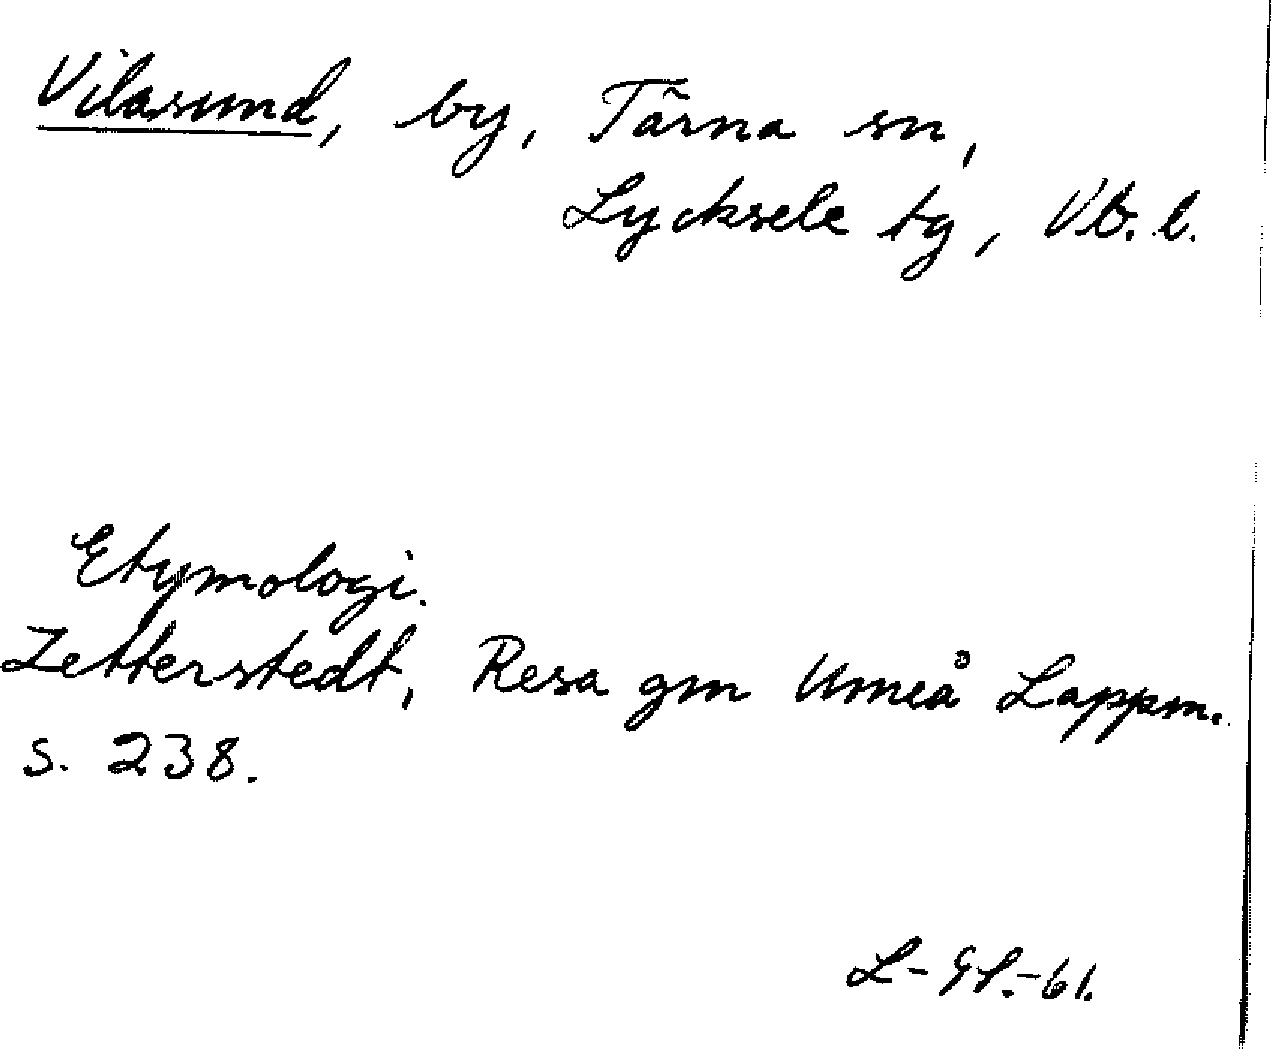 Vilasund, by, Tärna sn,
Lycksele tg, Vb. l.
Etymologi.
Zetterstedt, Resa gm Umeå Lappm.
s. 238.